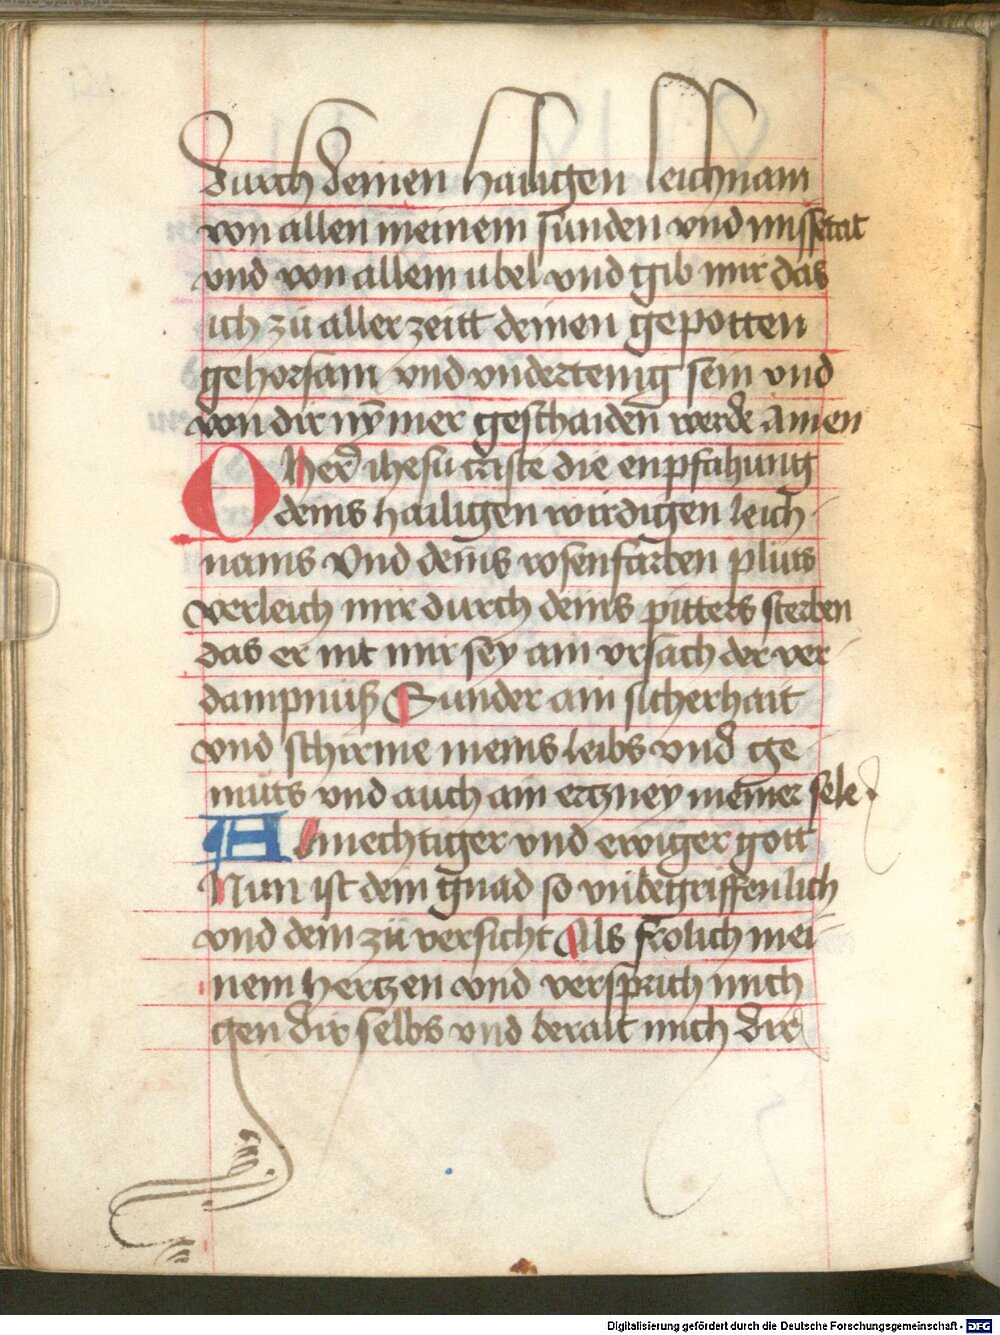 durch deinen hailigen leichnam
von allen meinem sünden vnd missetat
vnd von allem ubel vnd gib mir das
ich zü aller zeitt deinen gepotten
gehorsam vnd vndertenig sein vnd
von dir nÿmer geschaiden werde Amen
O Her ihesu criste die enpfahung
deins hailigen wirdigen leich
nams Vnd deins rosenfarben plüts
verleich mir durch deins pitters sterben
das er nit mir sey ain vrsach der ver
dampnüß Sunder ain sicherhait
vnd schirme meins leibs vnd ge
müts vnd auch ain ertzney meiner sele
Almechtiger vnd ewiger gott
Nun ist dein gnad so vnbegriffenlich
vnd dein zü versicht Als frolich mei
nem hertzen vnd versprich mich
gen dir selbs vnd beralt mich dir
Digitalisierung gefördert durch die Deutsche Forschungsgemeinschaft - DFG